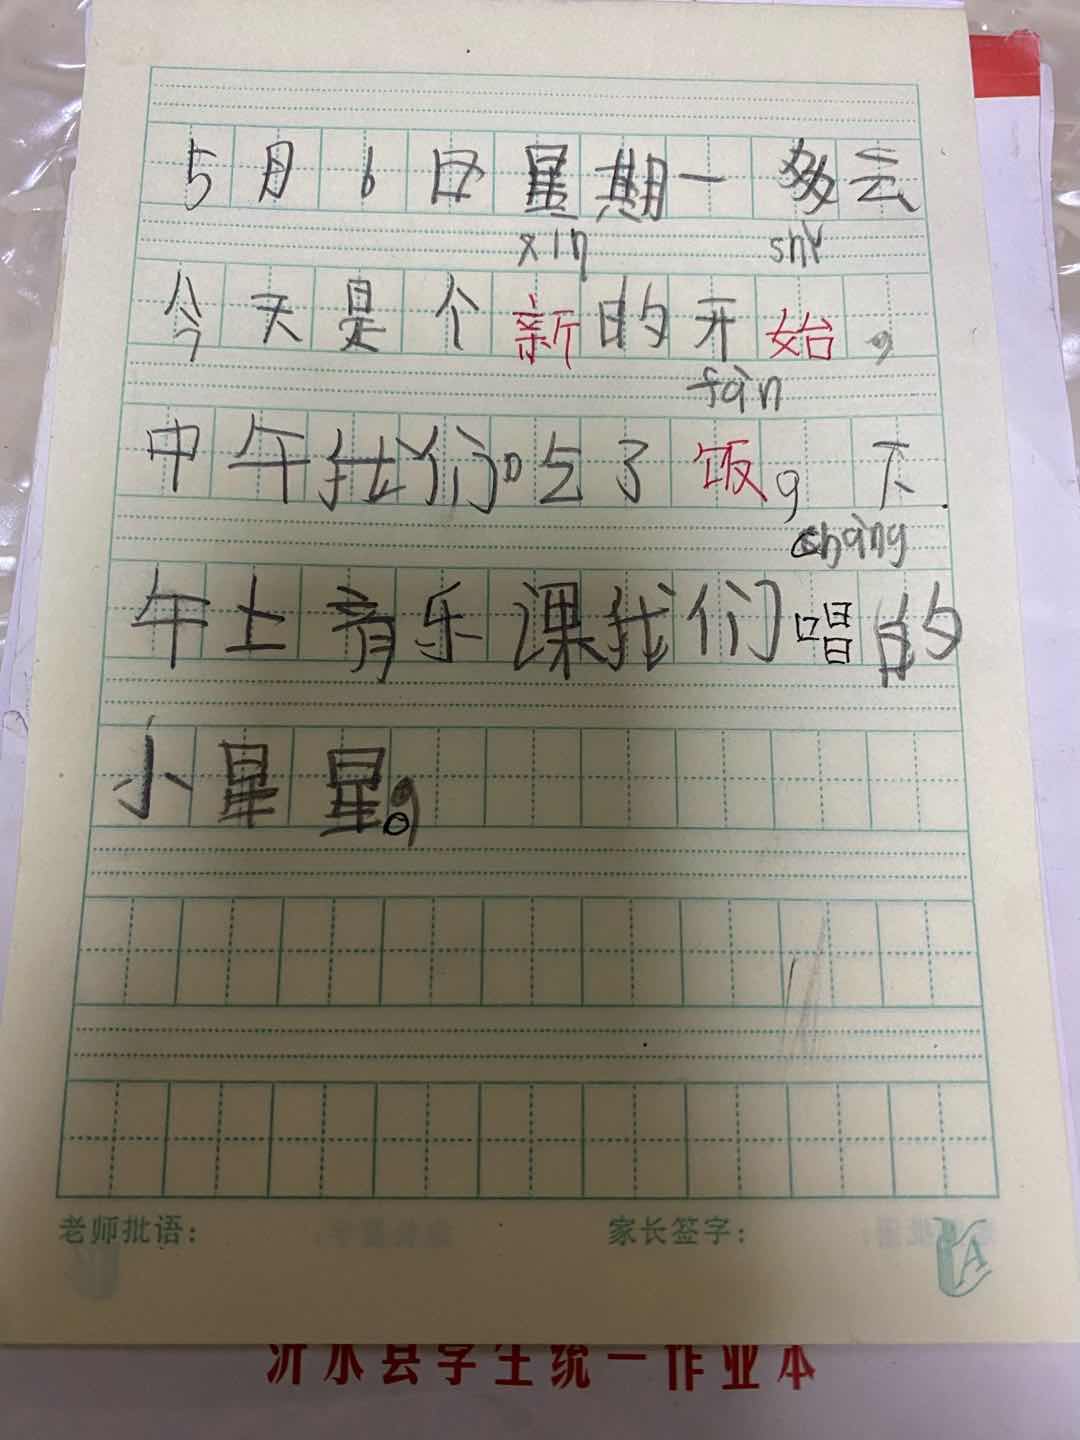 5月6日星期一 多云
xin shǐ
今天是个新的开始，
fàn
中午我们吃了饭，下
chàng
午上音乐课我们唱的
小星星。
老师批语： 家长签字：
沂水县学生统一作业本